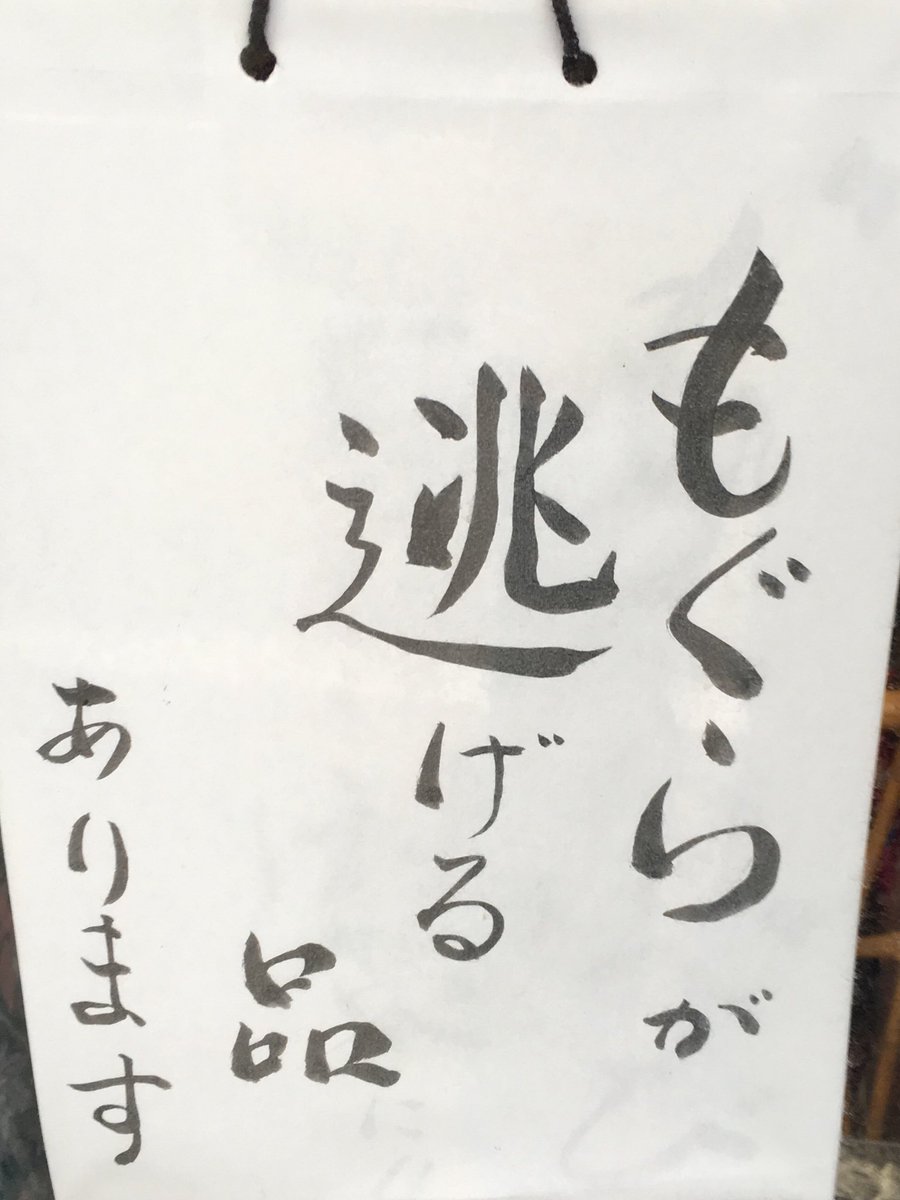 もぐらが
逃げる
品
あります